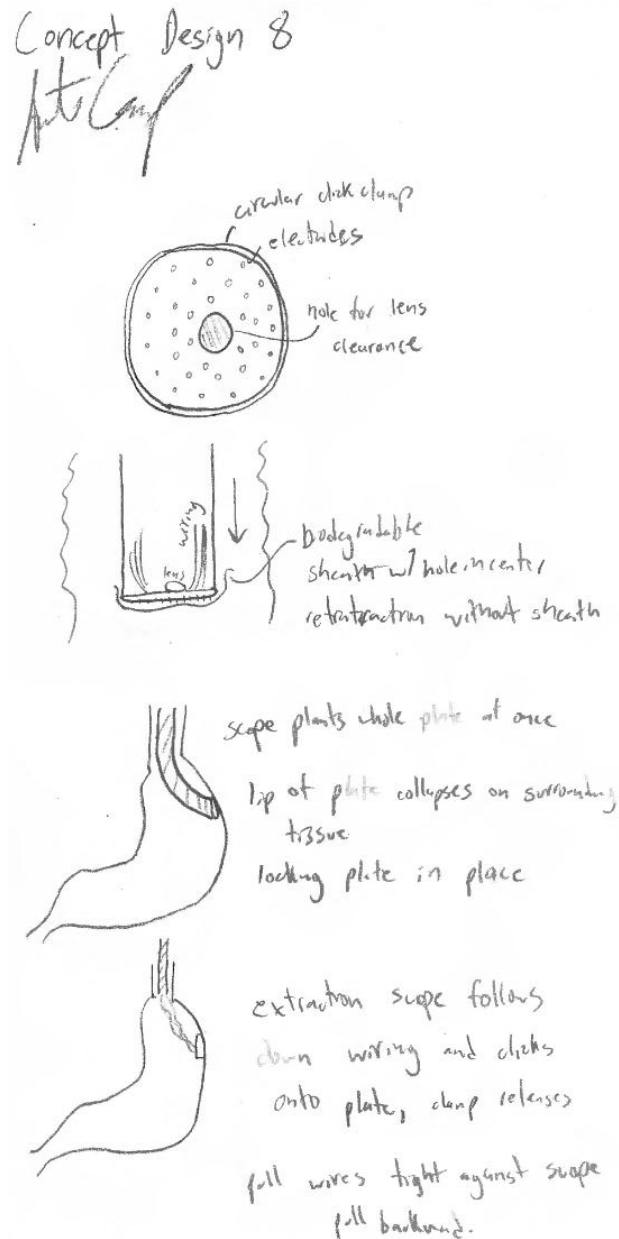 Concept Design 8
circular click clamp
electrodes
hole for lens
clearance
wiring
lens
biodegradable
sheath w/ hole in center
retratraction without sheath
scope plants whole plate at once
lip of plate collapses on surrounding
tissue
locking plate in place
extraction scope follows
down wiring and clicks
onto plate, clamp releases
pull wires tight against scope
pull backward.